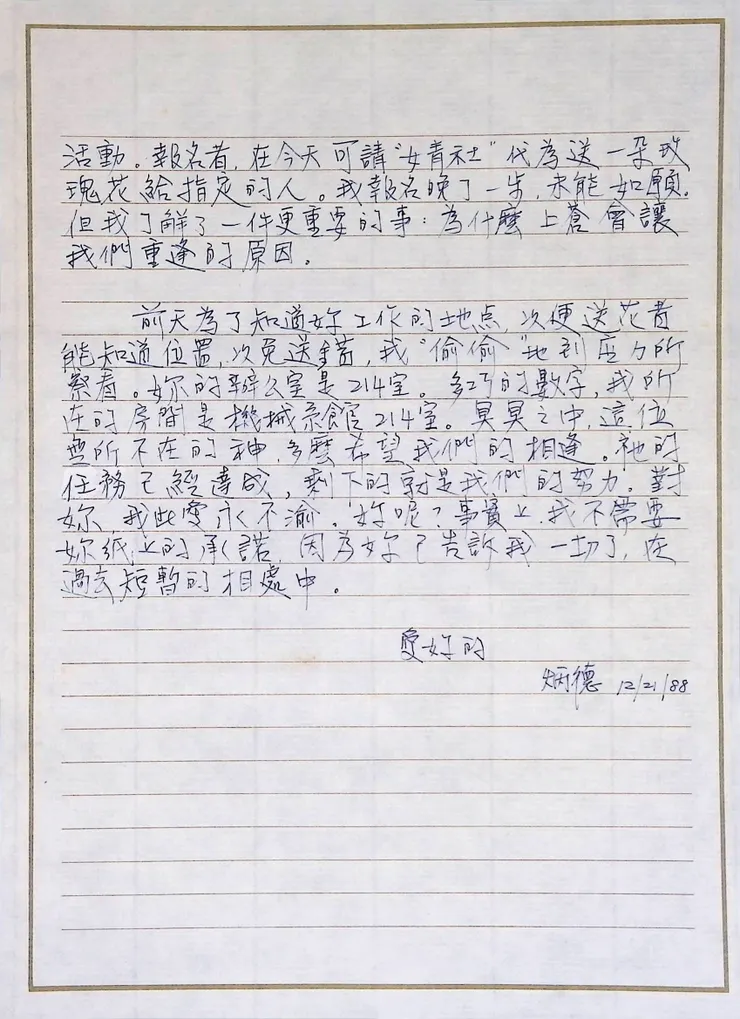 活動。報名者,在今天可請"女青社"代為送一朵玫
瑰花給指定的人。我報名晚了一步,未能如願.
但我了解了一件更重要的事:為什麼上蒼會讓
我們重逢的原因。
前天為了知道妳工作的地点,次便送花者
能知道位置,次免送錯,我"偷偷"地到应力所
察看。妳的辦公室是214室。多巧的數字,我所
在的房間是機械系館214室。冥冥之中,這位
無所不在的神,多麼希望我們的相逢。祂的
任務已經達成,剩下的就是我們的努力。對
妳,我此愛永不渝。妳呢?事實上,我不需要
妳紙上的承諾,因為妳已告訴我一切了,在
過去短暫的相處中。
愛妳的
炳德 12/21/88